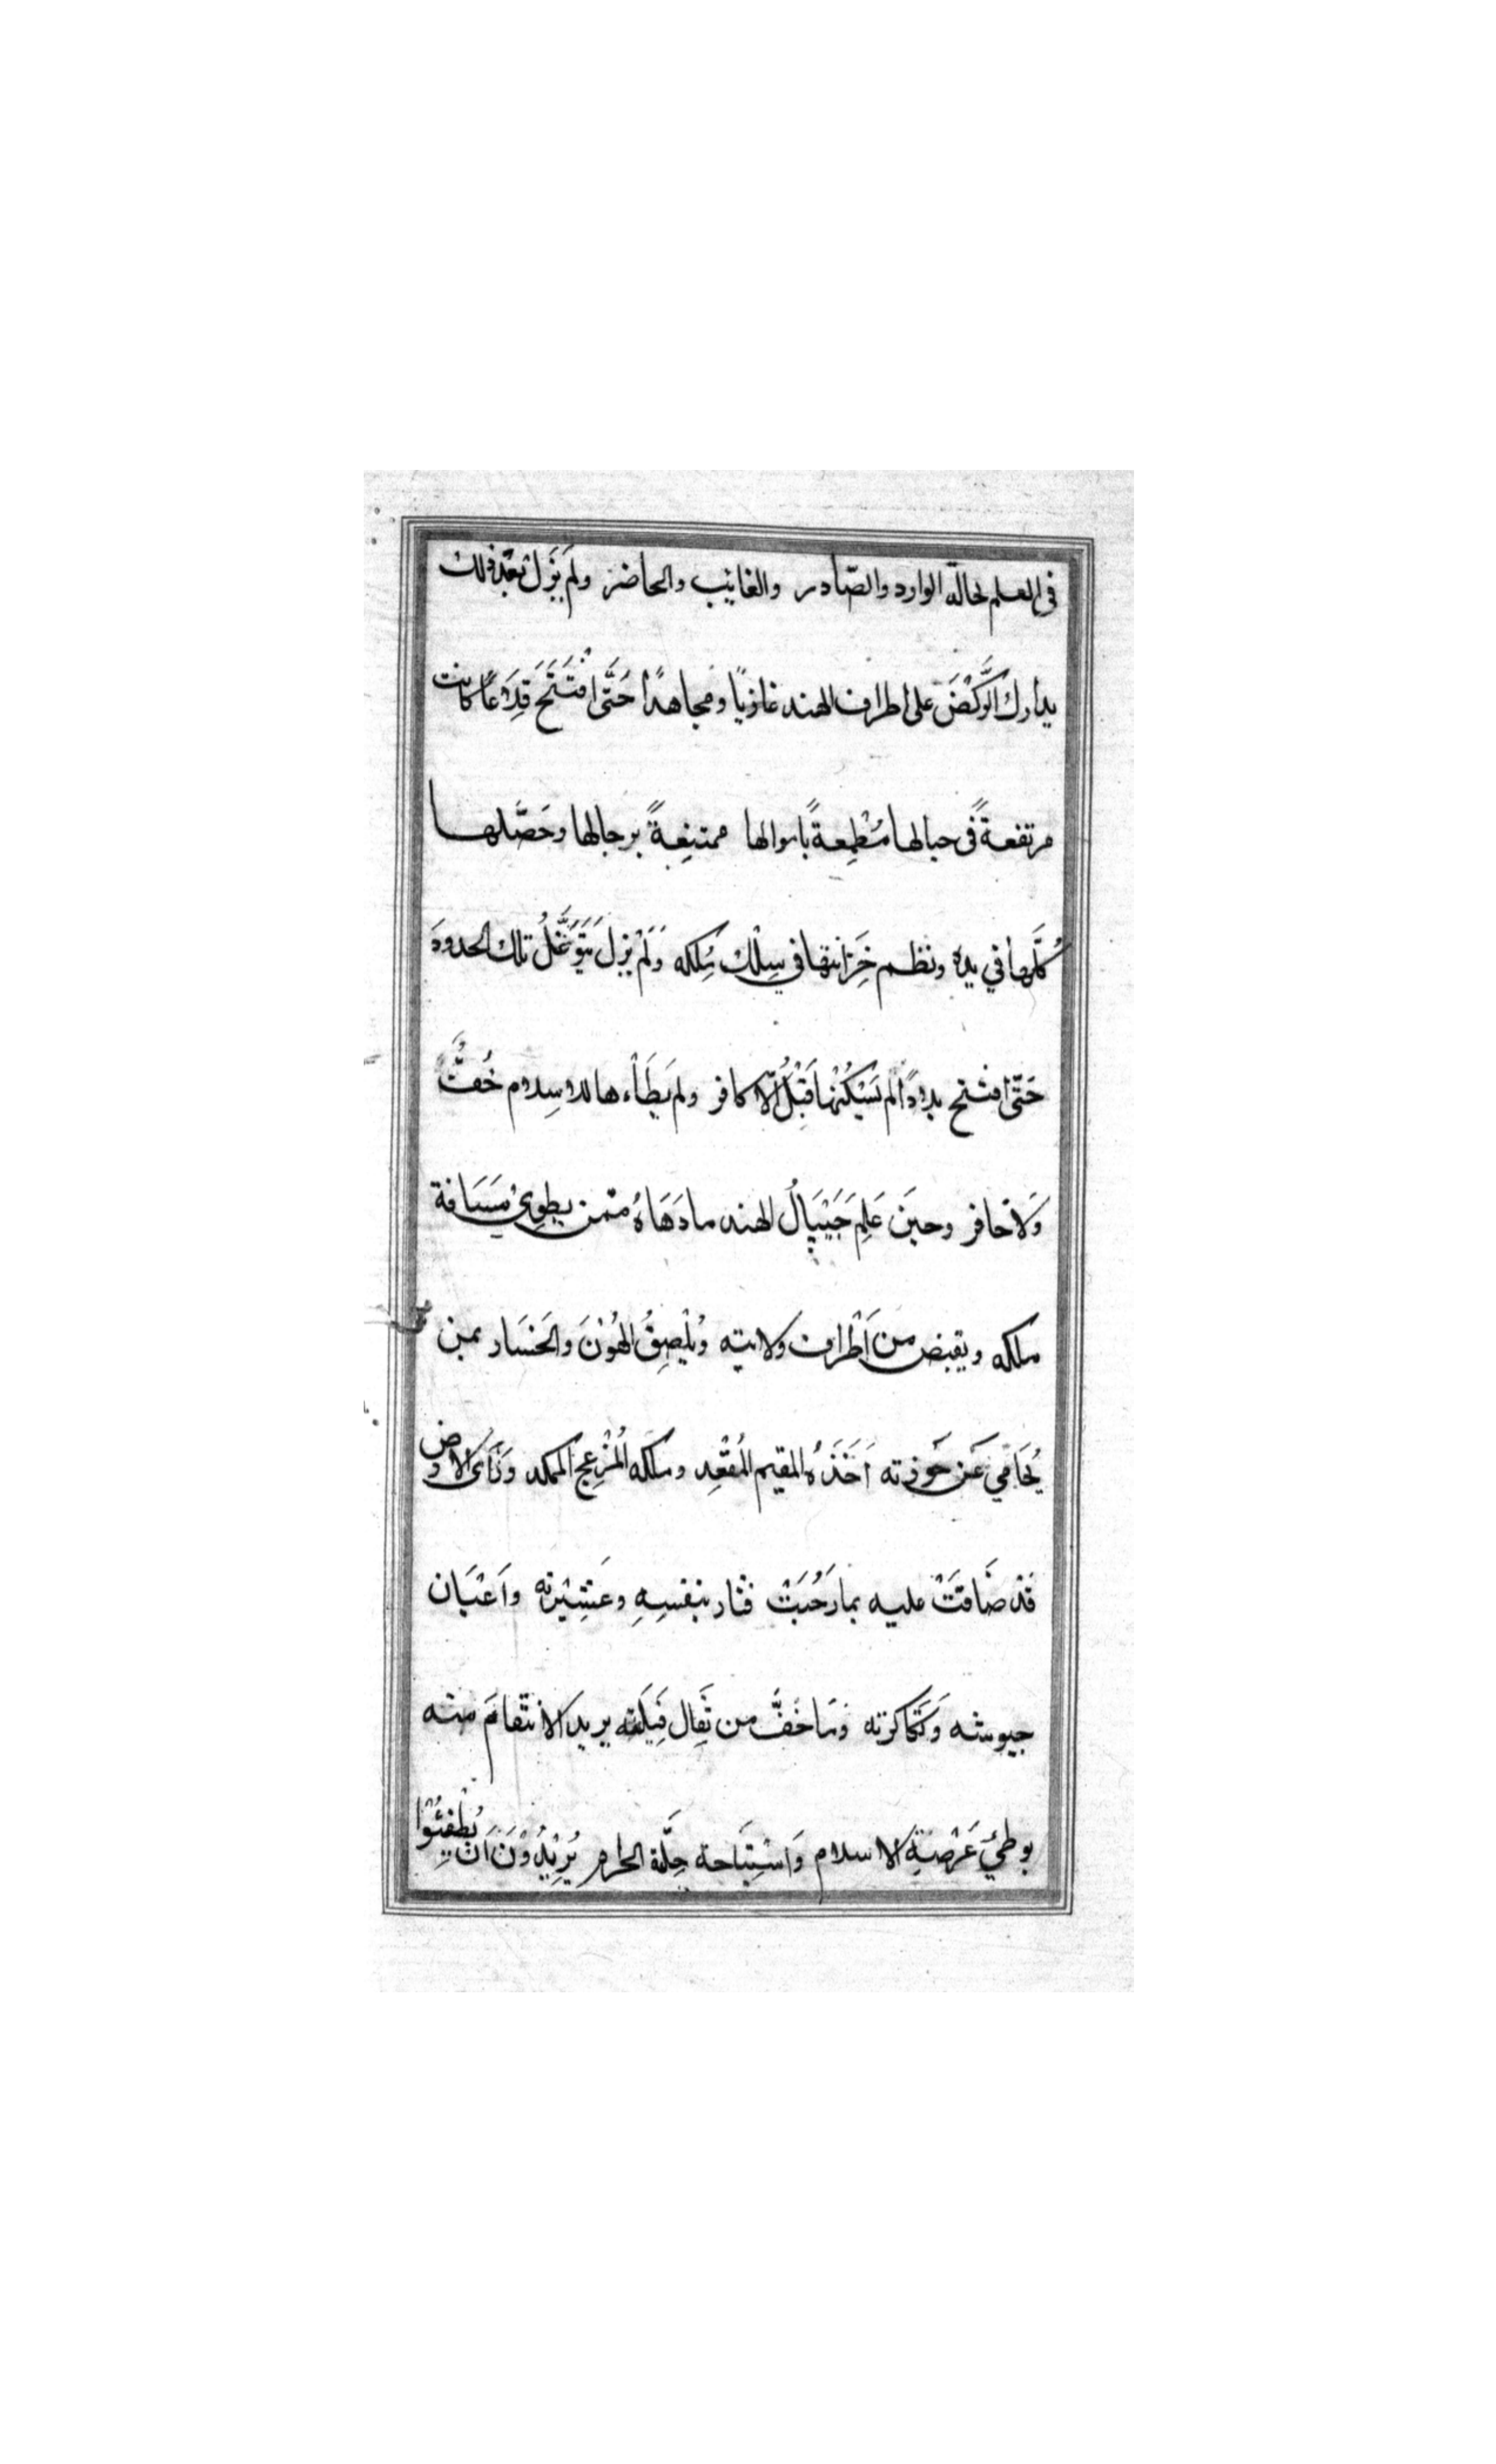 في العلم بحاله الوارد والصّادر والغايب والحاضر ولَم يَزَل بَعْدَ ذلك
يدارك الرَّكْضَ على اطراف الهند غازيًا ومجاهدًا حَتَّى افْتَتَحَ قِلَاعًا كانت
مرتفعةً في جبالها مُطْمِعةً باموالها ممتنِعةً برجالها وحَصَّلها
كُلَّها في يده ونظم خَزانتها في سِلْك مُلكه وَلَمْ يزل يَتَوَغَّلُ تلك الحدودَ
حَتّى افتتح بلادًا لم يَسْكُنْها قَبْلُ الّا كافر ولم يَطَأْها للاسلام خُفٌّ
وَلَا حَافر وحينَ عَلِمَ جَيْبَالُ الهند مادَهَاهُ ممّن يطوِيْ مَسَافة
ملكه ويقبض من اَطْراف ولايته ويُلْصِقُ الهُوْنَ والخَسَار بمن
يُحَامِي عَن حَوزته اَخَذَهُ المقيم المُقْعِد وملكه المُزْعِج المكمد وَرَأى الارض
قَدْ ضَاقَتْ عليه بما رَحُبَتْ فثار بنفسِهِ وعَشِيْرته واَعْيَان
جيوشه وَتَكَاكرته ومَا خَفَّ من ثِقال فِيَلَته يريد الانتقامَ منه
بوطئِ عَرْصَةِ الاسلام وَاسْتِبَاحة حِلَّة الحرام يُرِيْدُوْنَ اَنْ يُطْفِئُوْا